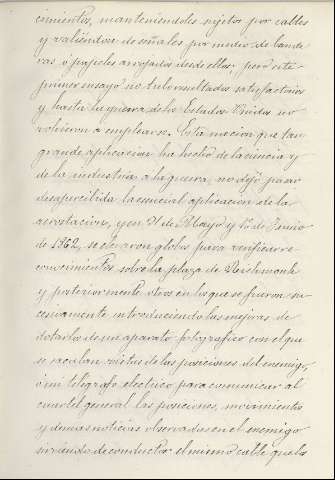 cimientos, manteniendolos sujetos por cables
y valiéndose de señales por medio de bande
ras o papeles arrojados desde ellos; pero este
primer ensayo no tubo resultado satisfactorio
y hasta la guerra de los Estados Unidos no
volvieron a emplearse. Esta nacion que tan
grande aplicacion ha hecho de la ciencia y
de la industria a la guerra, no dejó pasar
desapercibida la esencial aplicacion de la
aerostacion, y en 31 de Mayo y 1º de Junio
de 1862, se elevaron globos para verificar re
conocimientos sobre la plaza de Richmonh
y posteriormente otros en los que se fueron su
cesivamente introduciendo las mejoras de
dotarlos de un aparato fotografico con el que
se sacaban vistas de las posiciones del enemigo,
ó un telégrafo electrico para comunicar al
cuartel general las posiciones, movimientos
y demas noticias observadas en el enemigo
sirviendo de conductor el mismo cable que lo